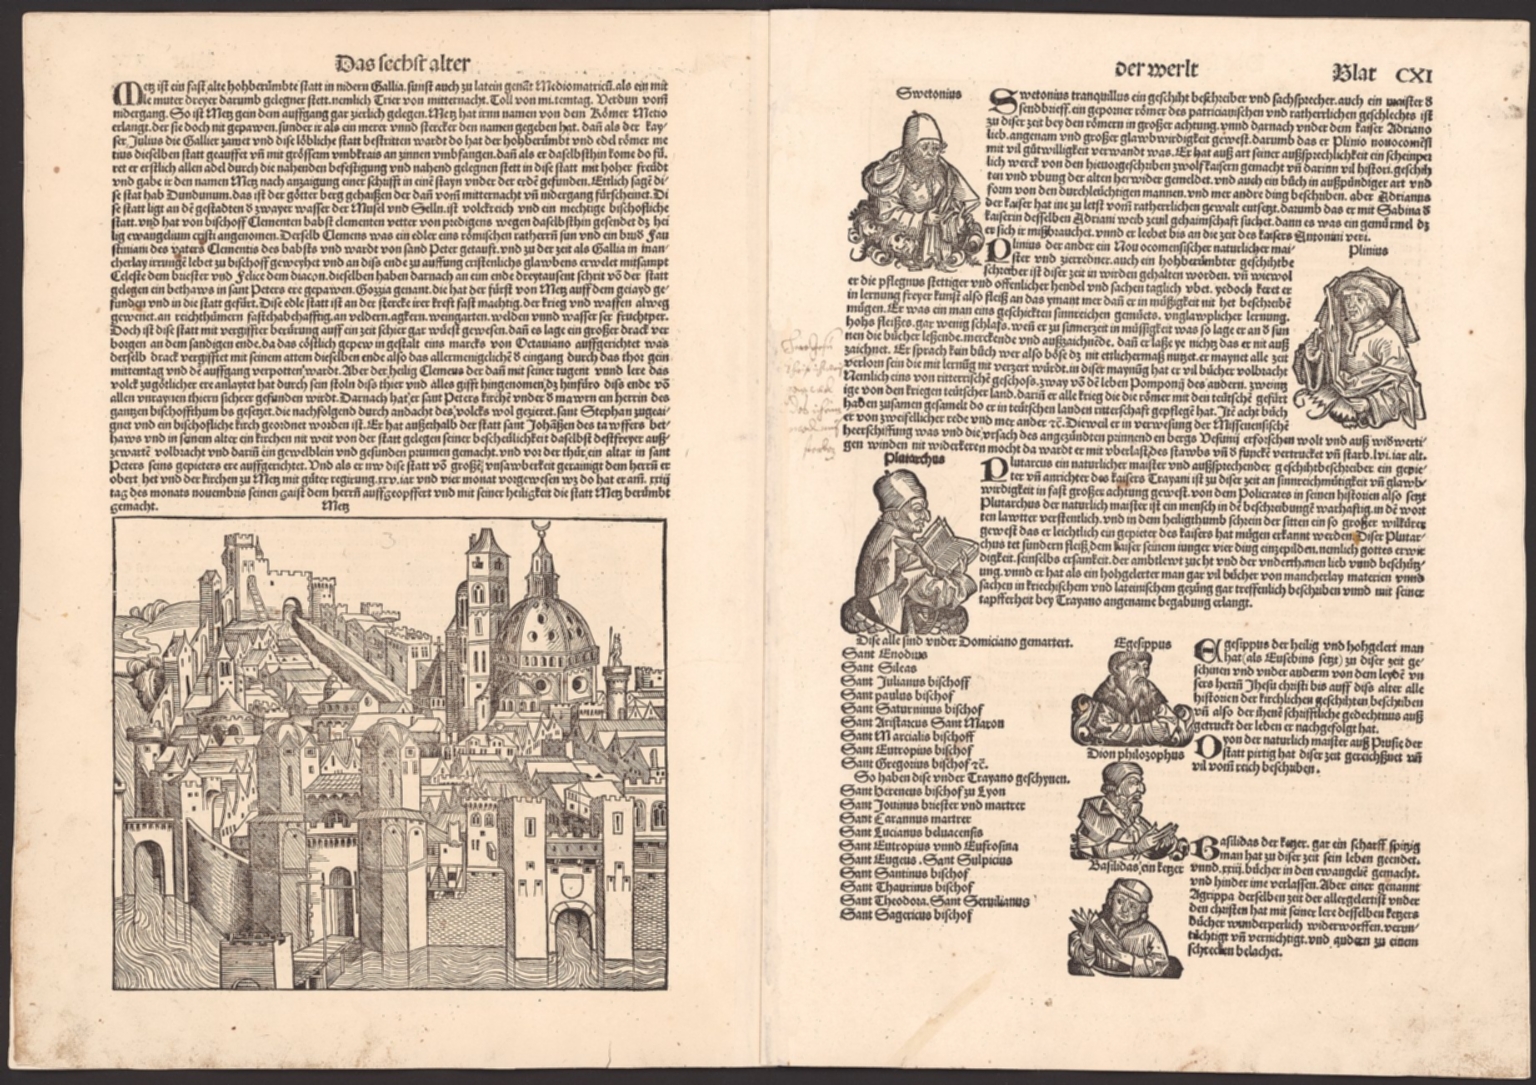 Das sechst alter
Metz ist ein fast alte hohberümbte statt in nidern Gallia. sunst auch zu latein genāt Mediomatricū. als ein mit
le muter dreyer darumb gelegner stett. nemlich Trier von mitternacht. Toll von mittemtag. Verdun vom
nidergang. So ist Metz gein dem auffgang gar zierlich gelegen. Metz hat irnn namen von dem Römer Metio
erlangt. der sie doch nit gepawen. sunder ir als ein merer vnnd stercker den namen gegeben hat. dañ als der kay/
ser Julius die Gallier zamet vnd dise löbliche statt bestritten wardt do hat der hohberümbt vnd edel römer me
tius dieselben statt geauffert vñ mit grössem vmbkrais an zinnen vmbfangen. dañ als er daselbsthin kome do fü.
ret er erstlich allen adel durch die nahenden befestigung vnd nahend gelegnen stett in dise statt mit hoher freüdt
vnd gabe ir den namen Metz nach anzaigung einer schrifft in eine stayn vnder der erde gefunden. Ettlich sagē di/
se stat hab Dundunum. das ist der götter berg gehaißen der dañ vom mitternacht vñ nidergang fürscheinet. Di
se statt ligt an dē gestaden d zwayer wasser der Musel vnd Selln. ist volckreich vnd ein mechtige bischofliche
statt. vnd hat von bischoff Clementen babst clementen vetter von predigens wegen daselbsthin gesendet dz hei
lig ewangelium cristi angenomen. Derselb Clemens was ein edler eins römischen ratherrn sun vnd ein bruď Fau
stiniani des vaters Clementis des babsts vnd wardt von sand Peter getaufft. vnd zu der zeit als Gallia in man/
cherlay irrungē lebet zu bischoff geweyhet vnd an diss ende zu auffung cristenlichs glawbens erwelet mitsampt
Celeste dem briester vnd Felice dem diacon. dieselben haben darnach an eim ende dreytausent schrit vō der statt
gelegen ein bethaws in sant Peters ere gepawen. Gozzia genant. die hat der fürst von Metz auff dem geiayd ge/
funden vnd in die statt gefürt. Dise edle statt ist an der stercke irer kreft fast machtig. der krieg vnd waffen alweg
gewenet. an reichthümern fastehabehafftig. an veldern. agkern. weingarten. welden vnnd wasser ser fruchtper.
Doch ist dise statt mit vergiffter berürung auff ein zeit schier gar wüest gewesen. dañ es lage ein großer drack ver
borgen an dem sandigen ende. da das cöstlich gepew in gestalt eins marcks von Octauiano auffgericht was
derselb drack vergifftet mit seinem attem dieselben ende also das allermenigclichē d eingang durch das thor gein
mittemtag vnd dē auffgang verpotten wardt. Aber der heilig Clemens der dañ mit seiner tugent vnnd lere das
volck zu götlicher ere anlaytet hat durch sein stoln diss thier vnd alles gifft hingenomen dz hinfüro diss ende vō
allen vnraynen thiern sicher gefunden wirdt. Darnach hat er sant Peters kirchē vnder d mawrn ein herrin des
gantzen bischoffthum bs gesetzt. die nachfolgend durch andacht des volcks wol gezieret. sant Stephan zugeai/
gnet vnd ein bischofliche kirch geordnet worden ist. Er hat außerhalb der statt sant Johāßen des tawffers bet/
haws vnd in seinem alter ein kirchen nit weit von der statt gelegen seiner bescheidlichkeit daselbst destfreyer auß/
zewarte volbracht vnd dariñ ein gewelblein vnd gesunden prunnen gemacht. vnd vor der thür ein altar in sant
Peters seins gepieters ere auffgerichtet. Vnd als er nw dise statt vō großer vnsawberkeit gerainigt dem herrn er
obert het vnd der kirchen zu Metz mit güter regirung. xxv. iar vnd vier monat vorgewesen wz do hat er am. xxiij
tag des monats nouembris seinen gaist dem herrñ auffgeopffert vnd mit seiner heiligkeit die statt Metz berümbt
gemacht.
Metz
der werlt Blat CXI
Swetonius
Swetonius tranquillus ein geschiht beschreiber vnd sachsprecher. auch ein maister d
sendbrieff. ein geporner römer des patricianischen vnd ratherrlichen geschlechts ist
zu diser zeit bey den römern in großer achtung. vnnd darnach vnder dem kaiser Adriano
lieb. angenam vnd großer glawbwirdigkeit gewest. darumb das er Plinio nouocomēsi
mit vil gütwilligkeit verwandt was. Er hat auß art seiner außsprechlichkeit ein scheinper
lich werck von den hieuorgeschriben zwolf kaisern gemacht vñ darinn vil histori. geschih
ten vnd vbung der alten herwider gemeldet. vnd auch ein büch in außpündiger art vnd
form von den durchleüchtigen mannen. vnd mer ander ding beschriben. aber Adrianus
der kaiser hat ine zu letst vom ratherrlichen gewalt entsetzt. darumb das er mit Sabina d
kaiserin desselben Adriani weib zeuil gehaimschaft süchet. dann es was ein gemürmel dz
er sich ir mißbrauchet. vnnd er leebet bis an die zeit des kaisers Antonini veri.
Plinius
Plinius der ander ein Nouocomensischer naturlicher mai/
ster vnd zierredner. auch ein hohberümbter geschihtbe
schreiber ist diser zeit in wirden gehalten worden. vñ wiewol
er die pflegnus stettiger vnd offenlicher hendel vnd sachen taglich vbet. yedoch keret er
in lernung freyer kunst also fleiß an das ymant mer dañ er in müßigkeit nit het beschreibē
mügen. Er was ein man eins geschickten sinnreichen gemüets. vnglawplicher lernung.
hohs fleißes. gar wenig schlafs. weñ er zu sumerzeit in müssigkeit was so lage er an d sun
nen die bücher lesende. merckende vnd außzaichnēde. dañ er laße ye nichtz das er nit auß
zaichnet. Er sprach kain büch wer also böse dz nit ettlichermaß nutzet. er maynet alle zeit
verlorn sein die mit lernüg nit verzert würdt. in diser maynūg hat er vil bücher volbracht
Nemlich eins von ritterrischē geschoss. zway vō dē leben Pomponij des andern. zweintz
ige von den kriegen teütscher land. dariñ er alle krieg die die römer mit den teütschē gefürt
haben zusamen gesamelt do er in teütschen landen ritterschaft gepflegē hat. Itē acht büch
er von zweifellicher rede vnd mer ander ꝛc. Dieweil er in verwesung der Missenensischē
heerschiffung was vnd die vrsach des angezündten prinnenden bergs Vesuuij erforschen wolt vnd auß wiďwerti
gen winden nit widerkeren mocht da wardt er mit vberlast des stawbs vñ d funckē vertrucket vñ starb. lvi. iar alt.
Plutarchus
Plutarcus ein naturlicher maister vnd außsprechender geschihtbeschreiber ein gepie/
ter vñ anrichter des kaisers Trayani ist zu diser zeit an sinnreichmütigkeit vñ glawb/
wirdigkeit in fast großer achtung gewest. von dem Policrates in seinen historien also setzt
Plutarchus der naturlich maister ist ein mensch in dē beschreibungē warhaftig. in dē wort
ten lawtter verstentlich. vnd in dem heiligthumb schrein der sitten ein so großer wilkürer
gewest das er leichtlich ein gepieter des kaisers hat mügen erkannt werden. Diser Plutar/
chus tet sundern fleiß dem kaiser seinem iunger vier ding einzepilden. nemlich gottes erwir
digkeit. seinselbs ersamkeit. der ambtlewt zucht vnd der vnderthanen lieb vnnd beschütz/
ung. vnnd er hat als ein hohgelerter man gar vil bücher von mancherlay materien vnnd
sachen in kriechischem vnd lateinischem gezüng gar treffenlich beschriben vnnd mit seiner
tapfferheit bey Trayano angename begabung erlangt.
Dise alle sind vnder Domiciano gemattert.
Sant Enodius
Sant Sileas
Sant Julianus bischoff
Sant paulus bischof
Sant Saturninus bischof
Sant Aristarcus Sant Maron
Sant Marcialis bischoff
Sant Eutropius bischof
Sant Gregorius bischof ꝛc.
So haben dise vnder Trayano geschynen.
Sant Hereneus bischof zu Lyon
Sant Jouinus briester vnd martrer
Sant Carannus martrer
Sant Lucianus beluacensis
Sant Eutropius vnnd Eufrosina
Sant Eugeus. Sant Sulpicius
Sant Santinus bischof
Sant Thaurinus bischof
Sant Theodora. Sant Seruilianus
Sant Sagericus bischof
Egesippus
Egesippus der heilig vnd hohgelert man
hat (als Eusebius setzt) zu diser zeit ge/
schinen vnd vnder anderm von dem leydē vn
sers herrñ Jhesu christi bis auff diss alter alle
historien der kirchlichen geschihten beschriben
vñ also der ihenē schrifftliche gedechtnus auß
getruckt der leben er nachgefolgt hat.
Dion philosophus
Dyon der naturlich maister auß Prusie der
statt pürtig hat diser zeit gereichßnet vñ
vil vom reich beschriben.
Basilidas ein ketzer
Basilidas der ketzer. gar ein scharff spitzig
man hat zu diser zeit sein leben geendet.
vnnd. xxiij. bücher in den ewangeliē gemacht.
vnd hinder ime verlassen. Aber einer genannt
Agrippa derselben zeit der allergelertist vnder
den christen hat mit seiner lere desselben ketzers
bücher wunderperlich widerworffen. vernn/
tüchtigt vñ vernichtigt. vnd gudern zu einem
schrecken belachet.